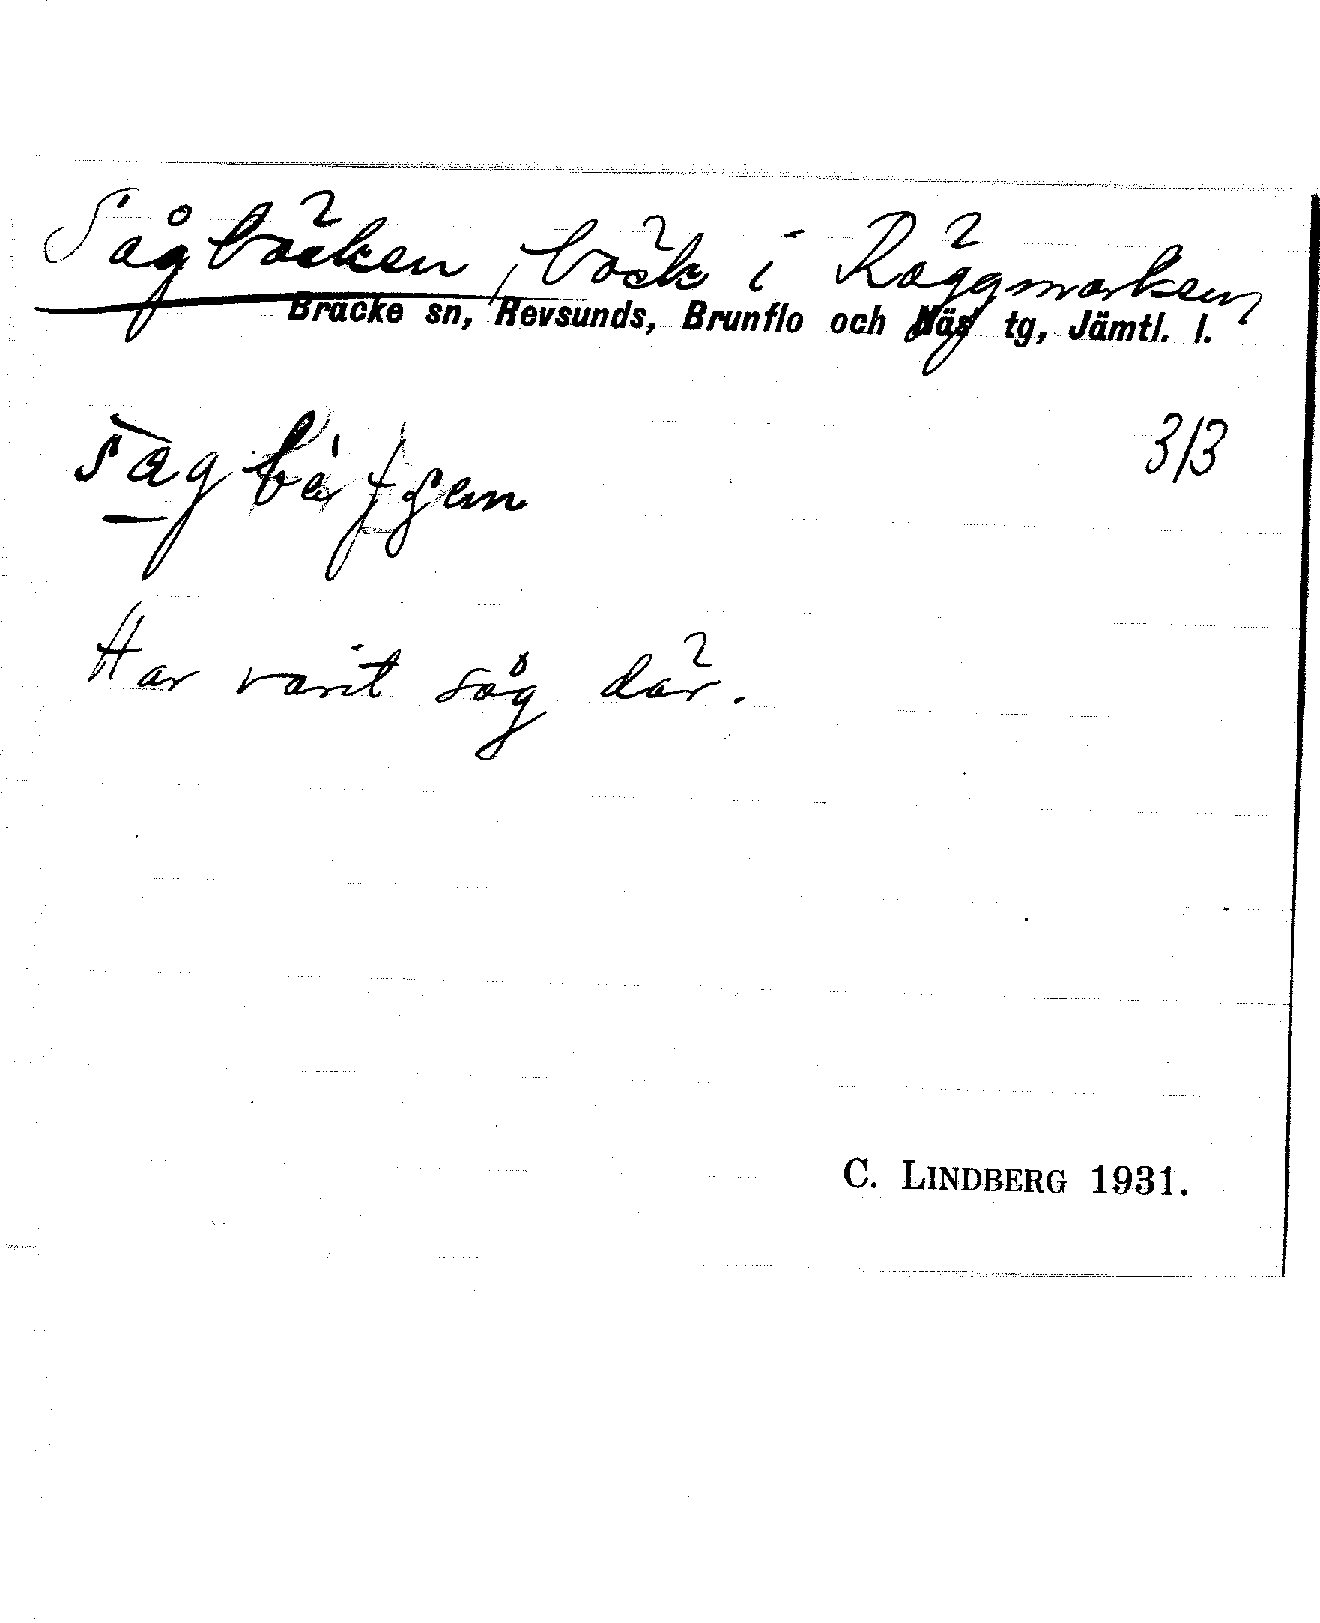 Sågbäcken, bäck i Räggmarken,
Bräcke sn, Revsunds, Brunflo och Näs tg, Jämtl. l.
3/3
Har varit såg där.
C. LINDBERG 1931.